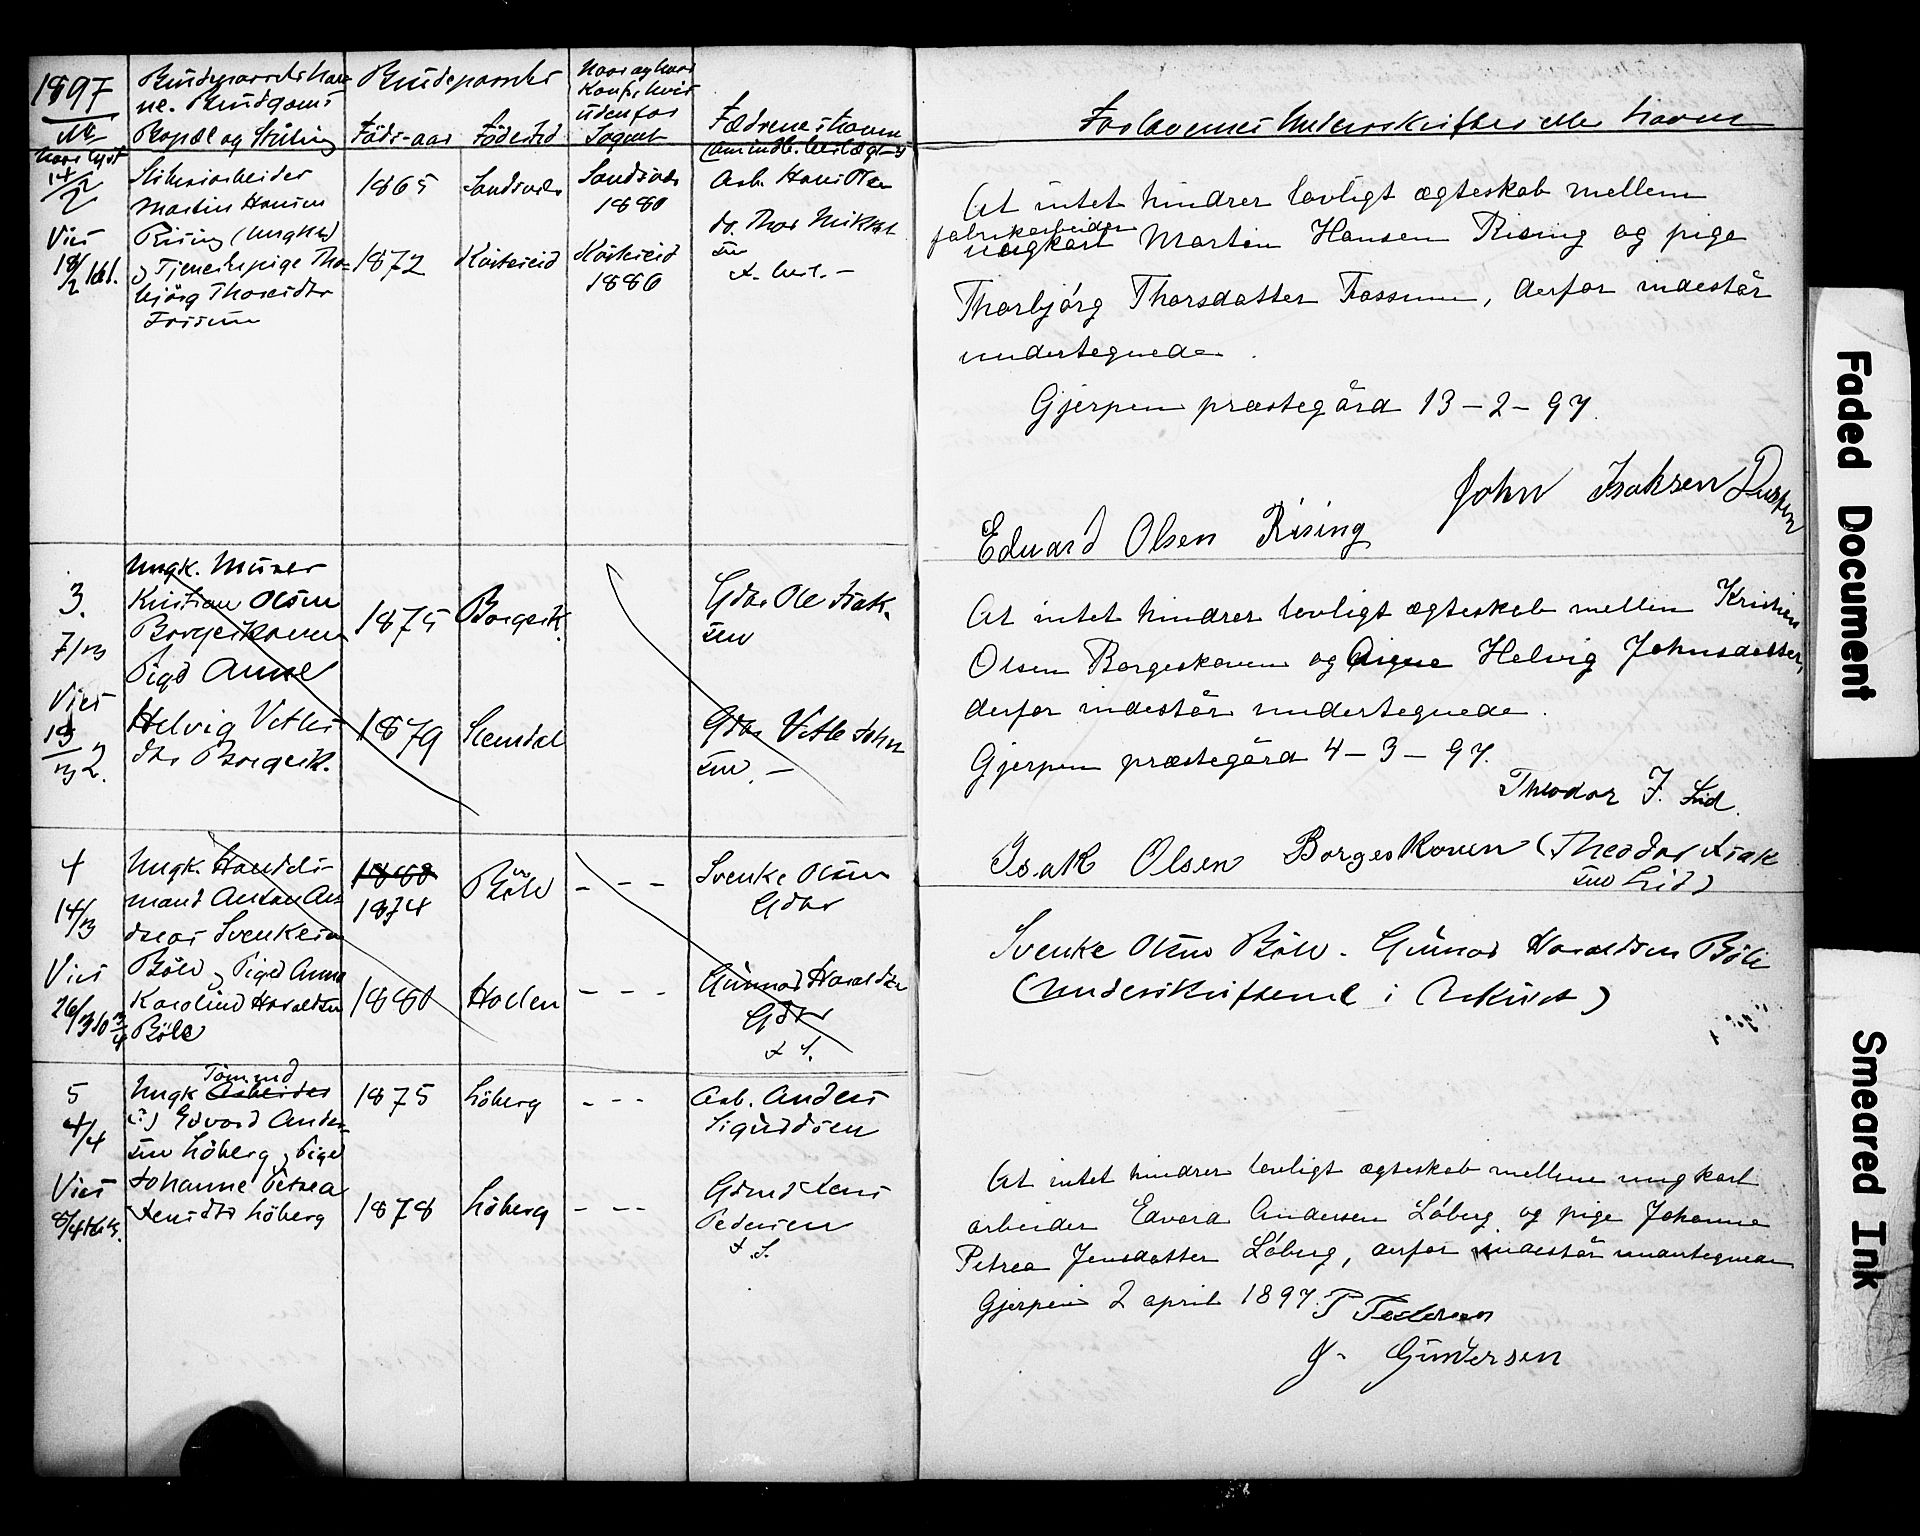 1897
No
Brudeparrets Nav-
ne. Brudgoms
Bopæl og Stilling
Brudeparrets
Föds-aar Födested
Naar og hvor
Konf. hvis
udenfor
Sognet
Fædrenes Navne
Forlovernes Underskrifter eller Navne
14/2
Martin Hansen
Rising (Ungka)
og Tjenestepige Thor-
bjørg Thorsdtr
Fossum
Viet
18/2
1865
1872
Sandsvær
Sandsvær
1880
1886
Arb. Hans Olsen
do. Thor Mikkel
sen
At intet hindrer lovligt ægteskab mellem
fabrikarbeider
ungkarl Martin Hansen Rising og pige
Thorbjörg Thorsdatter Fossum, derfor indestår
undertegnede.
Gjerpen præstegård 13-2-97.
John Isaksen
Eduard Olsen Rising
3.
7/3
Viet
Ungk. Murer
Kristian Olsen
Borgeskoven
Pige Anne
Helvig Vetles
dtr Borgesk.
1875
1879
Borgesk.
Slemdal
Gdbr Ole Isak-
sen
Gdbr Vetle John
sen. —
At intet hindrer lovligt ægteskab mellem Kristian
Olsen Borgeskoven og Pigen Helvig Johnsdatter,
derfor indestår undertegnede.
Gjerpen præstegård 4-3-97.
Theodor J. Lid.
Isak Olsen Borgeskoven (Theodor Isak
sen Lid)
4
14/3
Viet
26/3
Ungk. Handels-
mand Anton An
dreas Svenkesen
Böle og Pige Anna
Karoline Haraldsen
Böle
1874
1880
Böle
Hollen
- - -
- - -
Svenke Olsen
Gdbr
Gunnar Haraldsen
Gdbr
Svenke Olsen Böle. Gunnar Haraldsen Böle
(Underskrifterne i Arkivet)
5
4/4
Viet
8/4
Tömmd
Ungk Arbeider
Edvard Ander-
sen Löberg og Pige
Johanne Petrea
Jensdtr Löberg
1875
1878
Löberg
Löberg
- - -
- - -
Arb. Anders
Sigurdsen
Gdmd Jens
Pedersen
At intet hindrer lovligt ægteskab mellem ungkarl
arbeider Edvard Andersen Löberg og pige Johanne
Petrea Jensdatter Löberg, derfor indestår undertegnede
Gjerpen 2 april 1897. P Pedersen
G. Gundersen
Faded Document
Smeared Ink